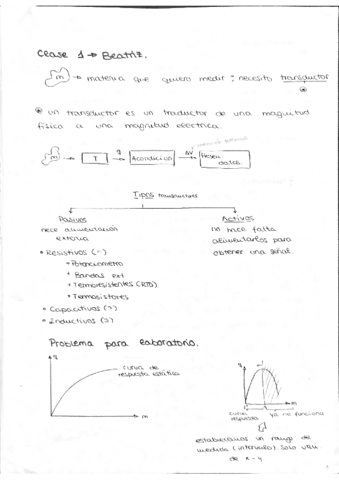 clase 1 → Beatriz.
m → materia que quiero medir; necesito transductor
⊛
⊛ un transductor es un traductor de una magnitud
física a una magnitud eléctrica.
m → T → Acondicion → ΔV → datos.
Tipos transductores
Pasivos
nece alimentación
externa
• Resistivos (-)
• Potenciometro
• Bandas ext
• Termorresistentes (RTD)
• Termistores
• Capacitivos (>)
• Inductivos (>)
Activos
no hace falta
alimentarlos para
obtener una señal
Problema para laboratorio.
curva de
respuesta estática
m
curva
respuesta
ya no funciona
establecemos un rango de
medida (intervalo). Solo
de x-y